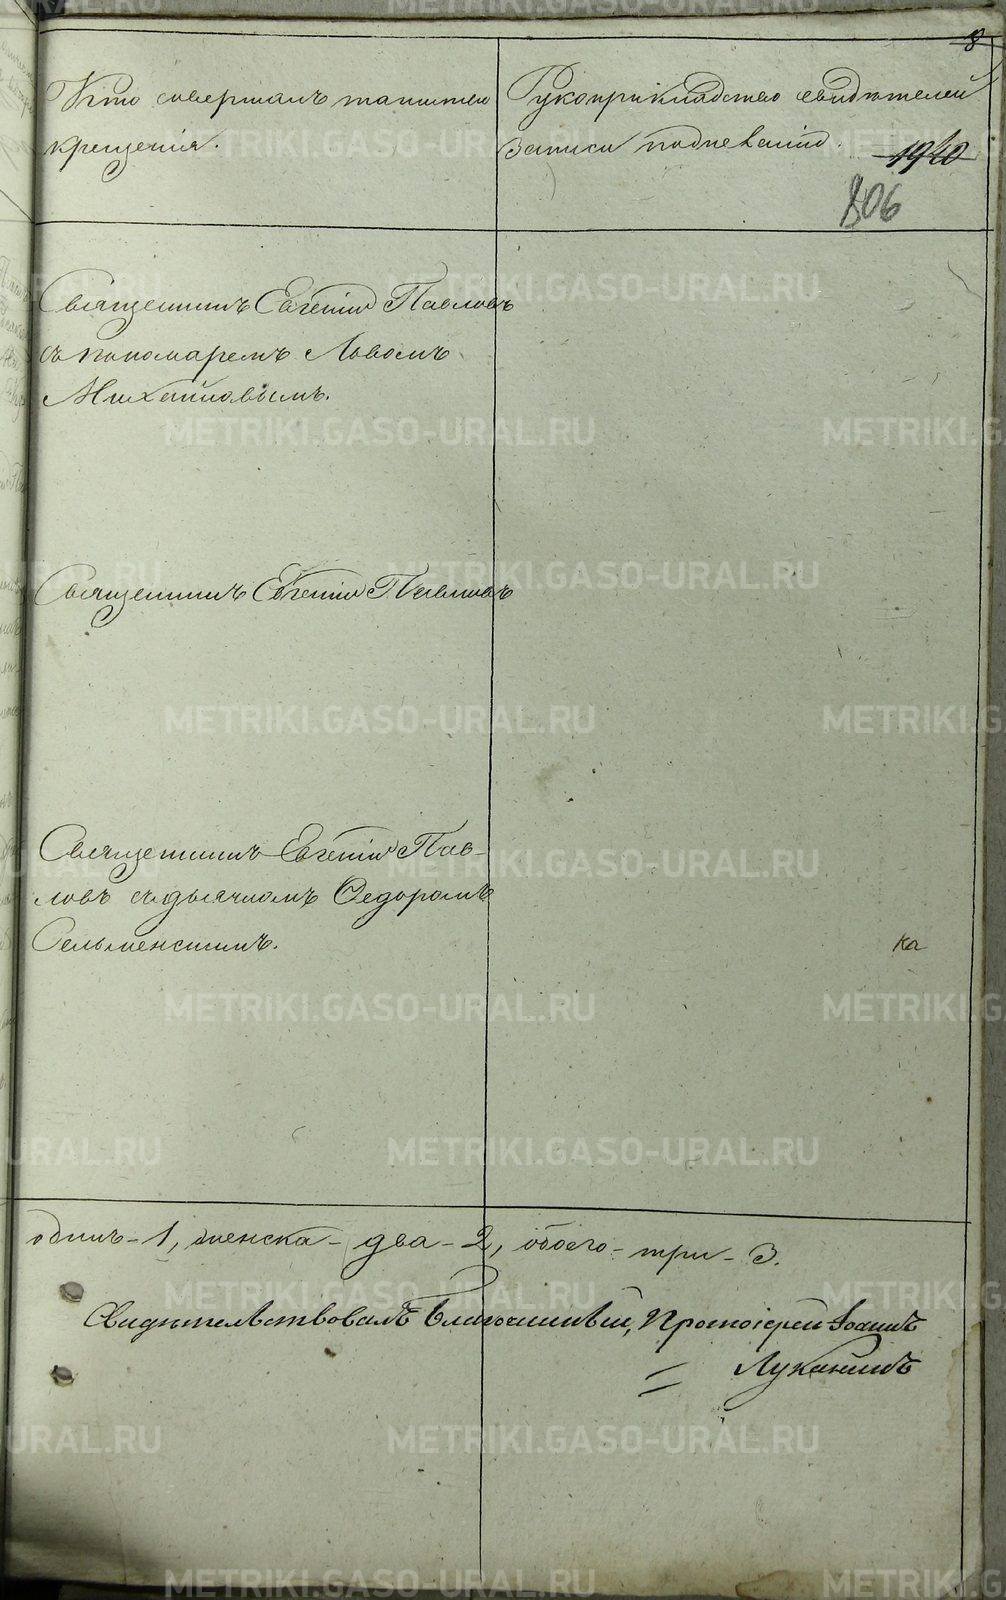 8
Кто совершалъ таинство
крещенія.
Рукоприкладство свидѣтелей
записи по желанію.
1940
806
Священникъ Евгеній Павловъ
съ пономаремъ Львомъ
Михайловымъ.
Священникъ Евгеній Павловъ
Священникъ Евгеній Пав-
ловъ съ дьячкомъ Ѳедоромъ
Сельменскимъ.
ка
одинъ - 1, женска - два - 2, обоего - три - 3.
Свидѣтельствовалъ Благочинный, Протоіерей Іоаннъ
Луканинъ
METRIKI.GASO-URAL.RU